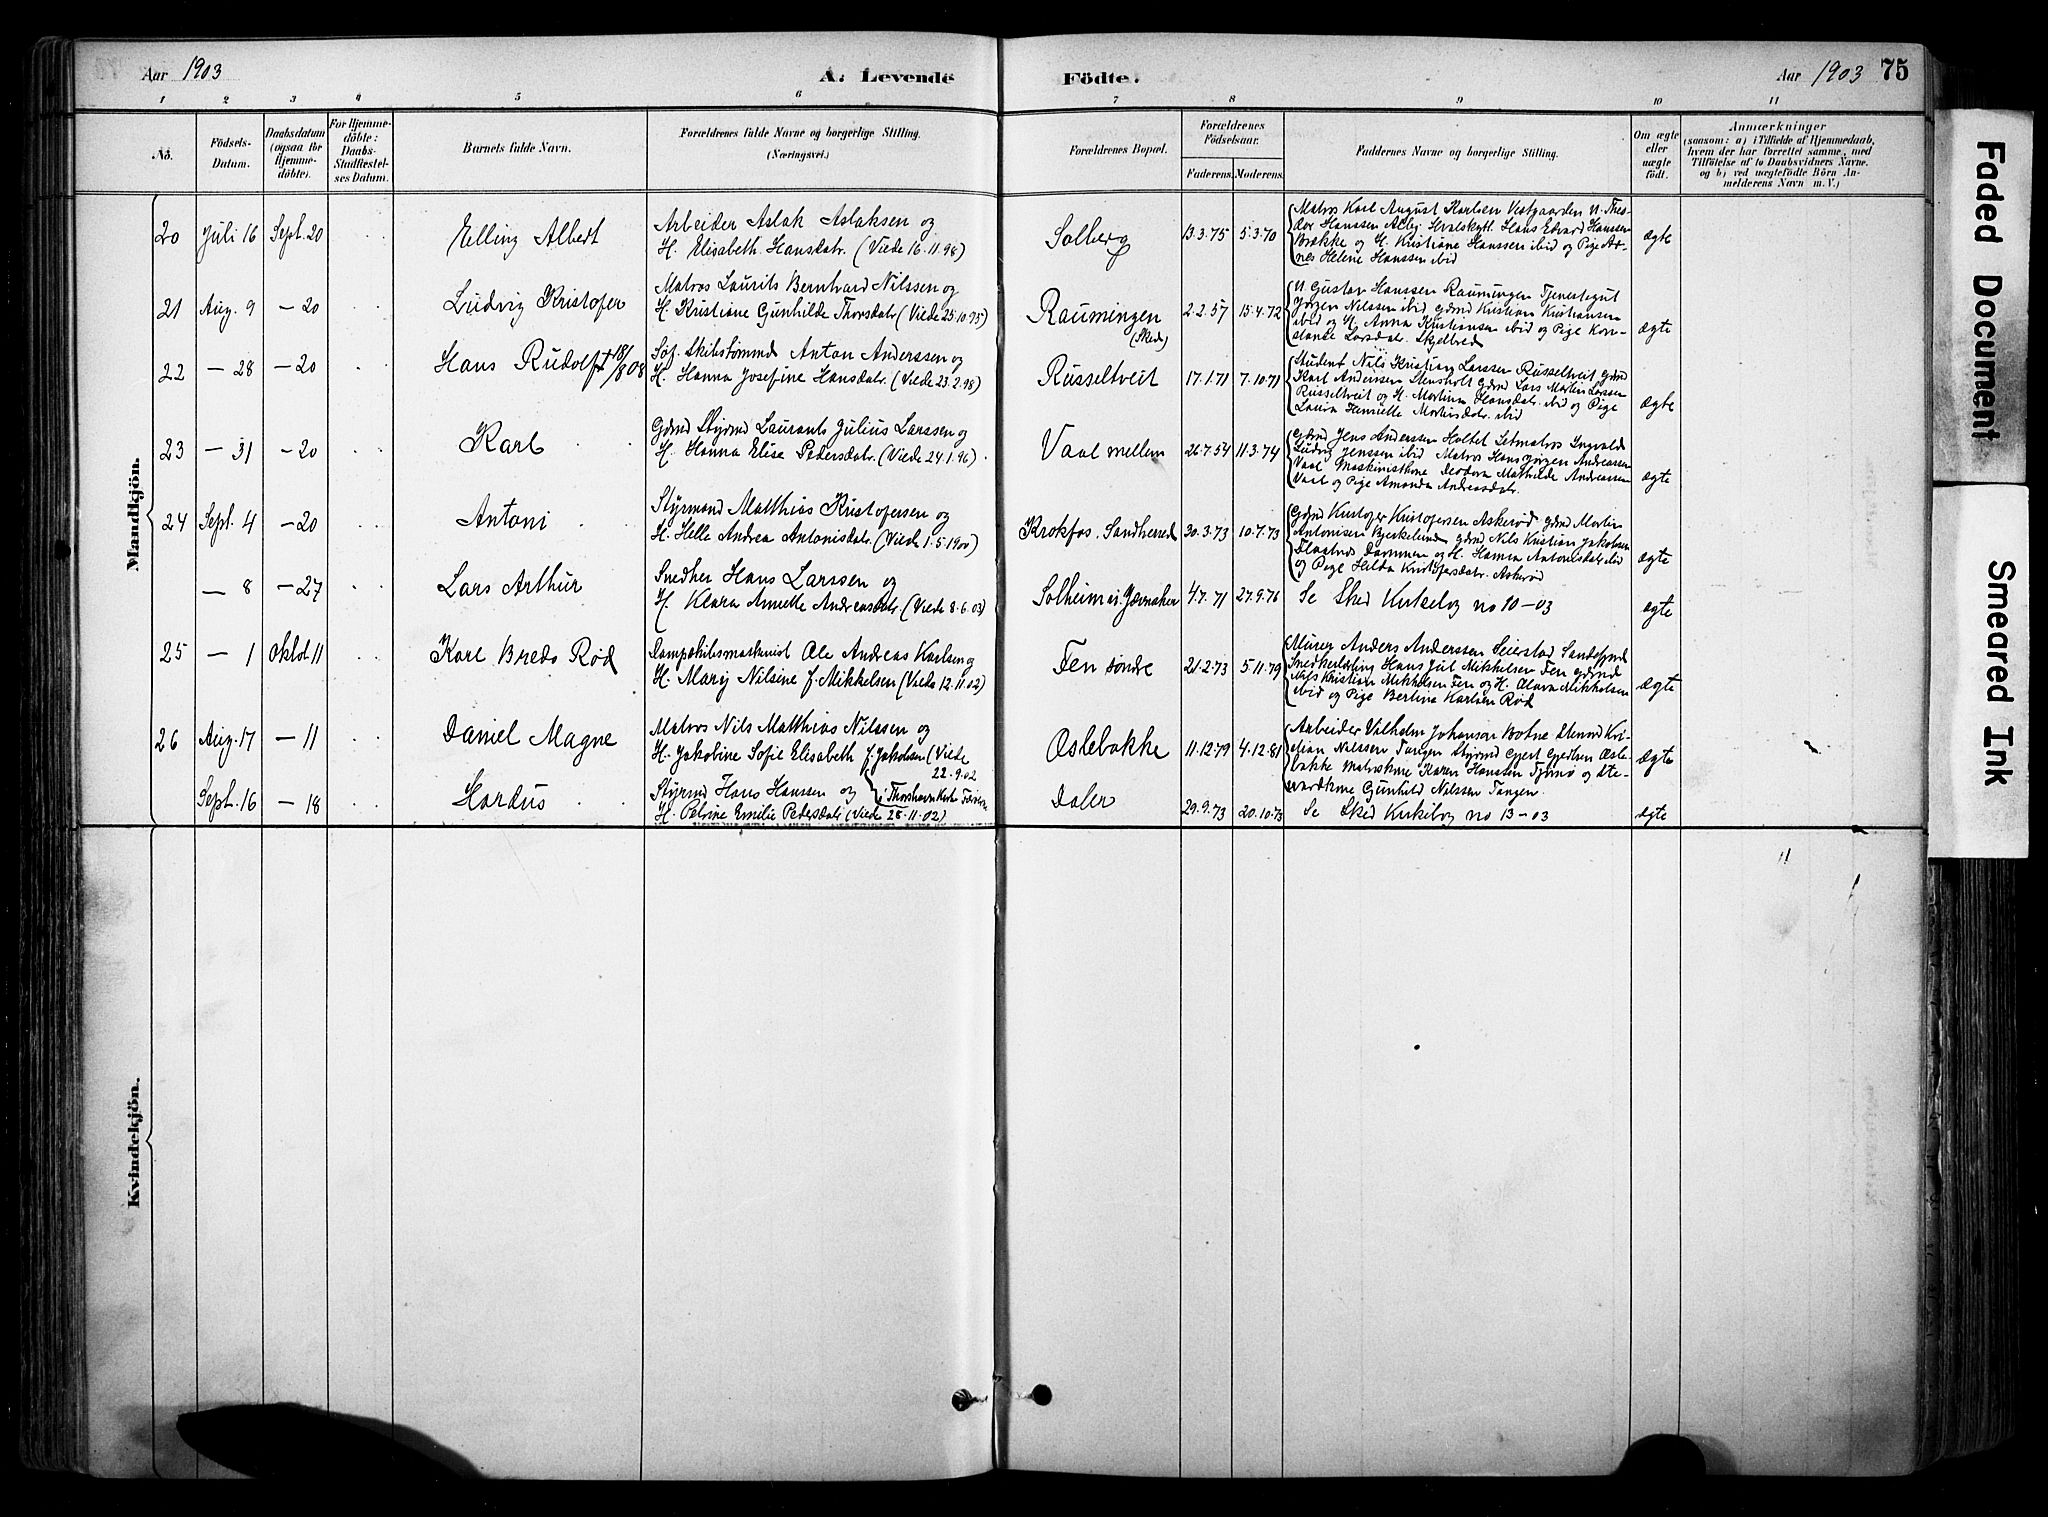 Aar 1903
A. Levende Födte.
Aar 1903 75
1 2 3 4 5 6 7 8 9 10 11
No.
Födsels-Datum.
Daabsdatum (ogsaa for Hjemme-döbte).
For Hjemme-döbte: Daabs-Stadfæstel-ses Datum.
Barnets fulde Navn.
Forældrenes fulde Navne og borgerlige Stilling. (Næringsvei.)
Forældrenes Bopæl.
Forældrenes Födselsaar.
Faderens. Moderens.
Faddernes Navne og borgerlige Stilling.
Om ægte eller uægte födt.
Anmærkninger
(saasom: a) i Tilfælde af Hjemmedaab, hvem der har forrettet samme, med Tilföielse af to Daabsvidners Navne, og b) ved uægtefödte Börn An-melderens Navn m. V.)
Mandkjön.
20 Juli 16 Sept. 20 Elling Albert
Arbeider Aslak Aslaksen og
H. Elisabeth Hansdatr. (Viede 16.11.98)
Solberg 13.3.75 5.3.70
Matros Karl August Karlsen Vestgaarden U. Theo-
dor Hanssen Aelby Hvalskytt. Hans Edvard Hanssen
Brække og H. Kristiane Hanssen ibid og Pige Ag-
nes Helene Hanssen ibid
ægte
21 Aug. 9 - 20 Ludvig Kristofer
Matros Laurits Berntvard Nilssen og
H. Kristiane Gunhilde Thorsdatr. (Viede 25.10.95)
Raumingen (Skeds) 2.2.57 15.4.72
U. Gustav Hanssen Raumingen Tjenestegut
Jörgen Nilssen ibid Gdmd Kristian Kristiansen
ibid og H. Anna Kristiansen ibid og Pige Kon-
stanse Larsdatr. Skjelbred
ægte
22 - 28 - 20 Hans Rudolf † 18/8 08
Söf. Skibstömmd Anton Anderssen og
H. Hanna Josefine Hansdatr. (Viede 23.2.98)
Russeltveit 17.1.71 7.10.71
Student Nils Kristian Larssen Russeltveit Gdmd
Karl Andersen Stensholt Gdmd Lars Martin Larssen
Russeltveit og H. Martina Hansdatr. ibid og Pige
Laura Henriette Martinsdatr. ibid
ægte
23 - 31 - 20 Karl
Gdmd Styrmd Laurants Julius Larssen og
H. Hanna Elise Pedersdatr. (Viede 24.1.96)
Vaal mellem 26.7.54 11.3.74
Gdmd Jens Anderssen Holtet Letmatros Ingvald
Ludvig Jenssen ibid Matros Hans Jörgen Andreassen
Vaal Maskinistkone Teodora Mathilde Andreassen
Vaal og Pige Amanda Andreasdatr.
ægte
24 Sept. 4 - 20 Antoni
Styrmand Matthias Kristofersen og
H. Helle Andrea Antonisdatr. (Viede 1.5.1900)
Krokfos. Sandherred 30.3.73 10.7.73
Gdmd Kristofer Kristofersen Askerød Gdmd Martin
Antonisen Bjerkelund Gdmd Nils Kristian Jakobsen
Dammen og H. Hanna Antonisdatr. ibid
og Pige Hilda Kristofersdatr. Askerød
ægte
- 8 - 27 Lars Arthur
Snedker Hans Larssen og
H. Klara Annette Andreasdatr. (Viede 8.6.03)
Solheim i Jævnaker 4.7.71 27.9.76
Se Sked Kirkebog no 10-03
ægte
25 - 1 Oktob 11 Karl Bredo Rød
Dampskibsmaskinist Ole Andreas Karlsen og
H. Mary Nilsine f. Mikkelsen (Viede 12.11.02)
Fen søndre 21.2.73 5.11.79
Murer Anders Anderssen Seierstad Sandefjord
Snedkerlærling Hans Juel Mikkelsen Fen Gdmd
Nils Kristian Mikkelsen Fen og H. Olava Mikkelsen
ibid og Pige Bertina Karlsen Rød
ægte
26 Aug. 17 - 11 Daniel Magne
Matros Nils Matthias Nilssen og
H. Jakobine Sofie Elisabeth f. Jakobsen (Viede
22.9.02
Oslebakke 11.12.79 4.12.81
Arbeider Vilhelm Johansen Botne Stenmd Kri-
stian Nilssen Tangen Styrmd Gjert Gjertsen Osle-
bakke Matroskone Karen Hanssen Tjømø og Ste-
wardkone Gunhild Nilssen Tangen.
ægte
Sept. 16 - 18 Hardus
Styrmd Hans Hanssen og
H. Petrine Emilie Pedersdatr. (Viede 28.11.02)
i Thorshavn Kirke Færøerne
Daler 29.9.73 20.10.73
Se Sked Kirkebog no 13-03
ægte
Kvindekjön.
Faded Document
Smeared Ink